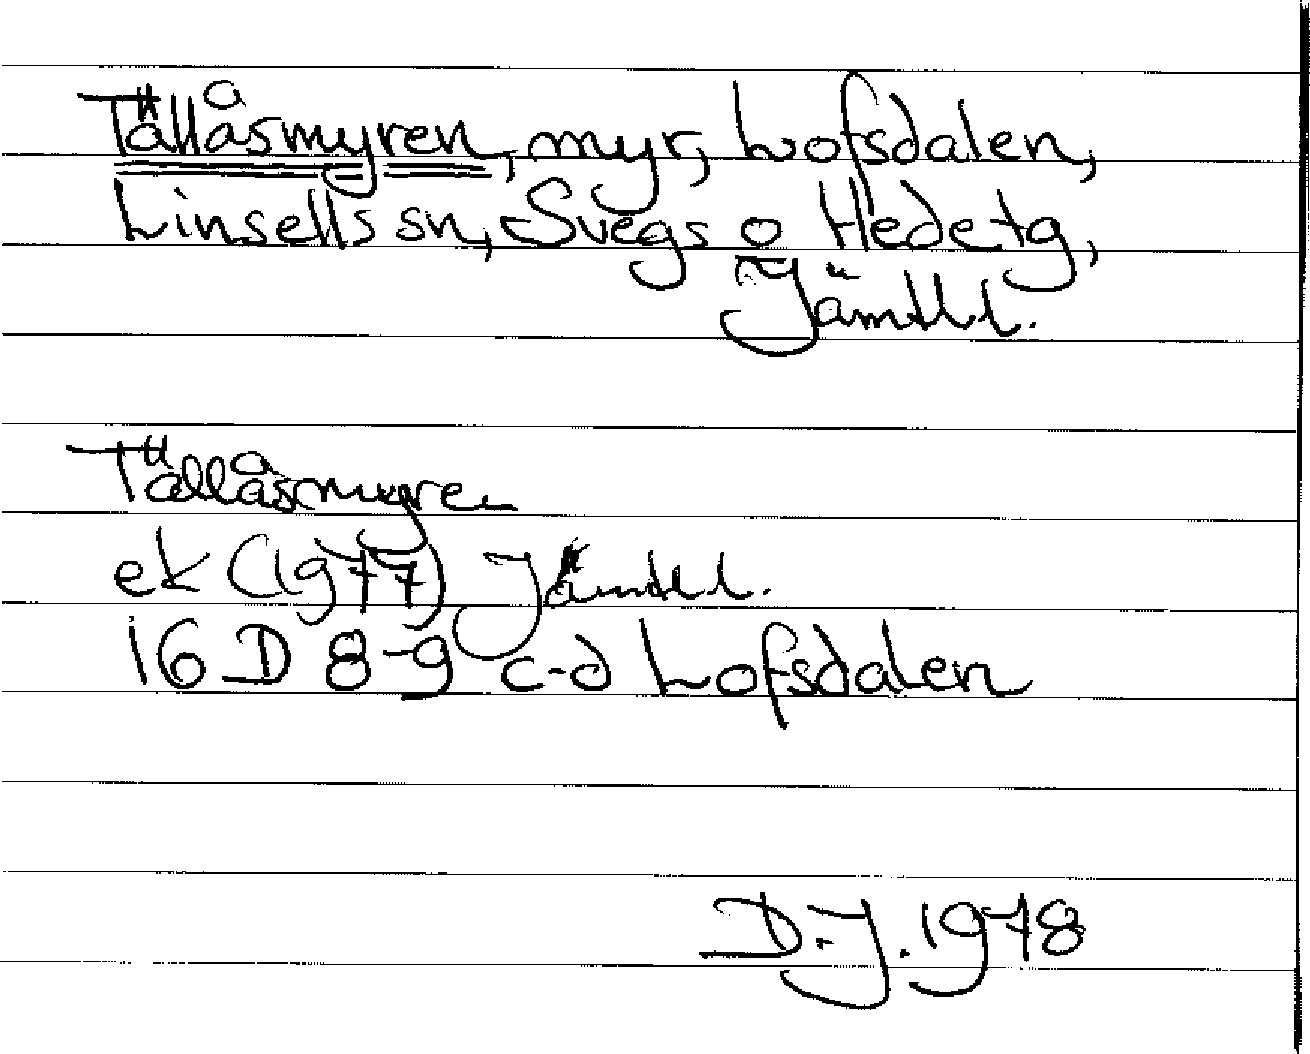 Tällåsmyren, myr, Lofsdalen,
Linsells sn, Svegs o Hede tg,
Jämtl l.
Tällåsmyren
ek (1977) Jämtl l.
16 D 8-9 c-d Lofsdalen
D.J. 1978